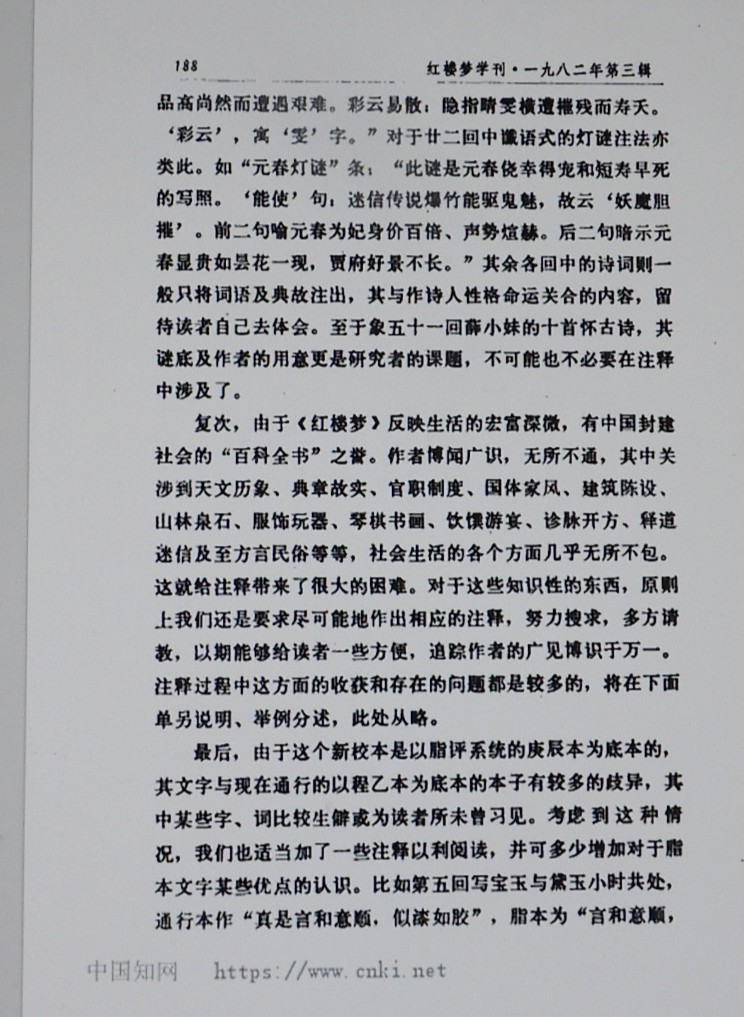 188
红楼梦学刊·一九八二年第三辑
品高尚然而遭遇艰难。彩云易散：隐指晴雯横遭摧残而寿夭。
‘彩云’，寓‘雯’字。”对于廿二回中谶语式的灯谜注法亦
类此。如“元春灯谜”条：“此谜是元春侥幸得宠和短寿早死
的写照。‘能使’句：迷信传说爆竹能驱鬼魅，故云‘妖魔胆
摧’。前二句喻元春为妃身价百倍、声势煊赫。后二句暗示元
春显贵如昙花一现，贾府好景不长。”其余各回中的诗词则一
般只将词语及典故注出，其与作诗人性格命运关合的内容，留
待读者自己去体会。至于象五十一回薛小妹的十首怀古诗，其
谜底及作者的用意更是研究者的课题，不可能也不必要在注释
中涉及了。
复次，由于《红楼梦》反映生活的宏富深微，有中国封建
社会的“百科全书”之誉。作者博闻广识，无所不通，其中关
涉到天文历象、典章故实、官职制度、国体家风、建筑陈设、
山林泉石、服饰玩器、琴棋书画、饮馔游宴、诊脉开方、释道
迷信及至方言民俗等等，社会生活的各个方面几乎无所不包。
这就给注释带来了很大的困难。对于这些知识性的东西，原则
上我们还是要求尽可能地作出相应的注释，努力搜求，多方请
教，以期能够给读者一些方便，追踪作者的广见博识于万一。
注释过程中这方面的收获和存在的问题都是较多的，将在下面
单另说明、举例分述，此处从略。
最后，由于这个新校本是以脂评系统的庚辰本为底本的，
其文字与现在通行的以程乙本为底本的本子有较多的歧异，其
中某些字、词比较生僻或为读者所未曾习见。考虑到这种情
况，我们也适当加了一些注释以利阅读，并可多少增加对于脂
本文字某些优点的认识。比如第五回写宝玉与黛玉小时共处，
通行本作“真是言和意顺，似漆如胶”，脂本为“言和意顺，
中国知网 https://www.cnki.net